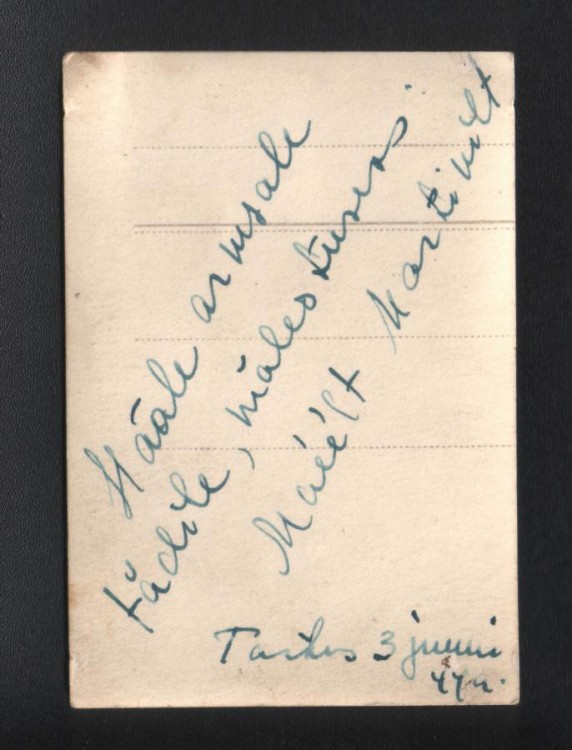 Hääle armsale
tädile, mälestuseks
Maiélt Martinilt
Tartus 3 juuni
44 a.